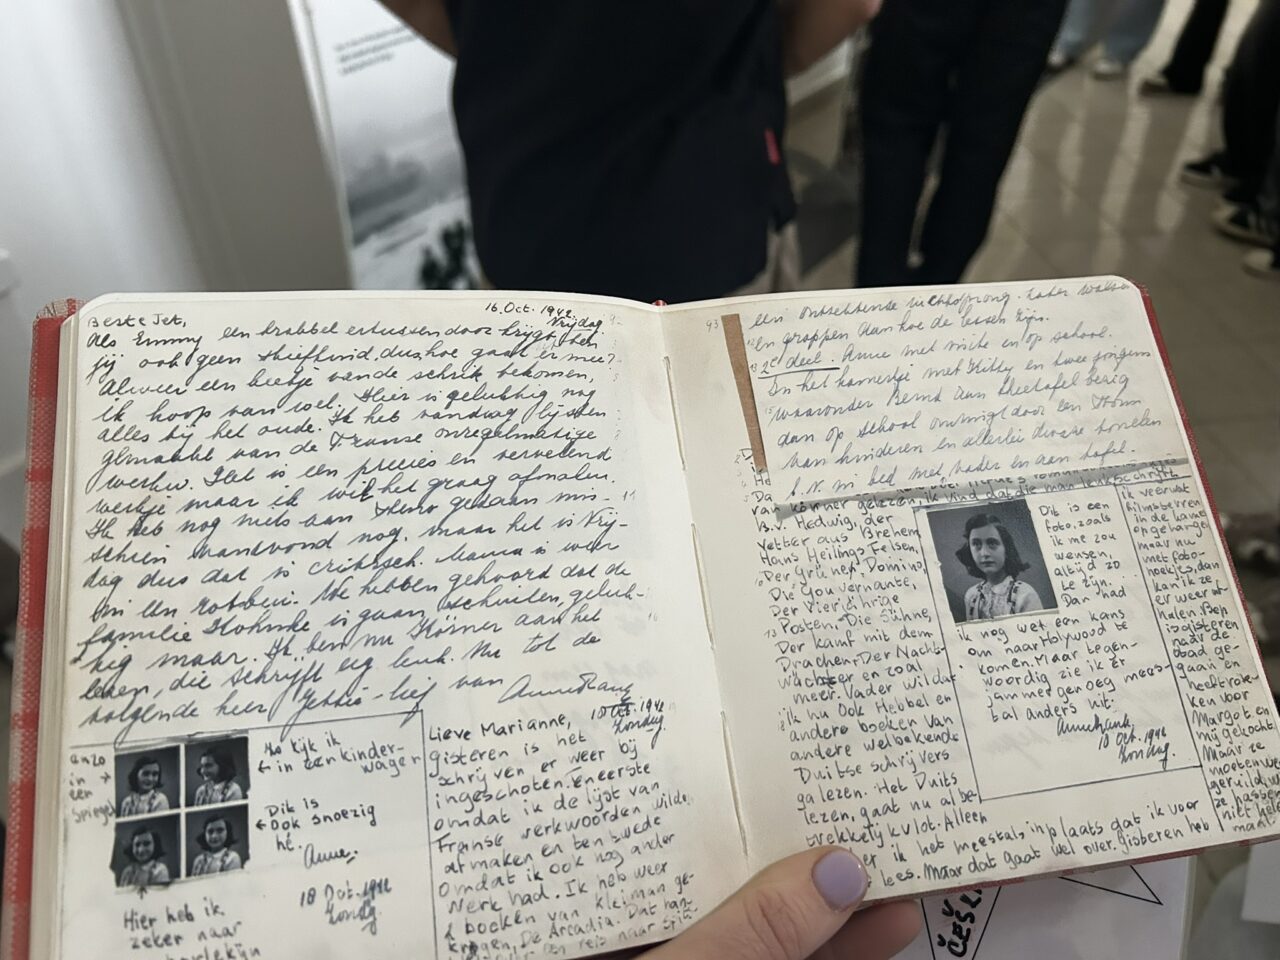 16. Oct. 1942.
Vrijdag
Beste Jet,
Als Emmy een krabbel ertussendoor krijgt, ben
jij ook geen stiefkind, dus hoe gaat er mee?
Alweer een beetje van de schrik bekomen,
ik hoop van wel. Hier is gelukkig nog
alles bij het oude. Ik heb vandaag lijsten
gemaakt van de Franse onregelmatige
werkw. Het is een precies en vervelend
werkje maar ik wil het graag afmaken.
Ik heb nog niets aan steno gedaan mis-
schien vanavond nog, maar het is Vrij-
dag dus dat is critisch. Mama is weer
in een rotbui. We hebben gehoord dat de
familie is gaan schuilen, geluk-
kig maar. Ik ben nu Körner aan het
lezen, die schrijft erg leuk. Nu tot de
volgende keer Jettie-lief van
Anne Frank
en zo
in
een
Spiegel
No kijk ik
in een kinder-
wagen
Dit is
ook snoezig
hé.
Anne.
18 Oct. 1942
Zondag
Hier heb ik
zeker naar
Lieve Marianne,
18 Oct. 1942
Zondag.
gisteren is het
schrijven er weer bij
ingeschoten. Ten eerste
omdat ik de lijst van
Franse werkwoorden wilde
afmaken en ten tweede
omdat ik ook nog ander
werk had. Ik heb weer
2 boeken van Kleiman ge-
kregen, De Arcadia. Dat han-
een reis naar Spitz
93
een ontzettende
en grappen aan hoe de lessen zijn.
2e deel. Anne met nicht en op school.
In het kamertje met Kitty en twee jongens
waaronder Bernd aan theetafel bezig
dan op school omringd door een stroom
van kinderen en allerlei dwaze tonelen
b.v. in bed met vader en aan tafel.
van Körner gelezen, ik vind dat die man leuk schrijft.
B.v. Hedwig, der
Vetter aus Bremen,
Hans Heilings Felsen,
Der Grüne Domino,
Die Gouvernante,
Der Vierjährige
Posten, Die Sühne,
Der Kampf mit dem
Drachen, Der Nacht-
wächter en zoal
meer. Vader wil dat
ik nu ook Hebbel en
andere boeken van
andere welbekende
Duitse schrijvers
ga lezen. Het Duits
lezen, gaat nu al be-
trekkelijk vlot. Alleen
er ik het meestal, in plaats dat ik voor
lees. Maar dat gaat wel over. Gisteren heb
Dit is een
foto, zoals
ik me zou
wensen,
altijd zo
te zijn.
Dan had
ik nog wel een kans
om naar Holywood te
komen. Maar tegen-
woordig zie ik er
jammer genoeg mees-
tal anders uit.
Anne Frank.
18 Oct. 1942
Zondag.
ik weer wat
filmsterren
in de kamer
opgehangen
maar nu
met foto-
hoekjes, dan
kan ik ze
er weer af
halen. Bep
is gisteren
naar de
stad ge-
gaan en
heeft rok-
ken voor
Margot en
mij gekocht.
Maar ze
moeten
geruild
ze passen
niet
ČEŠ